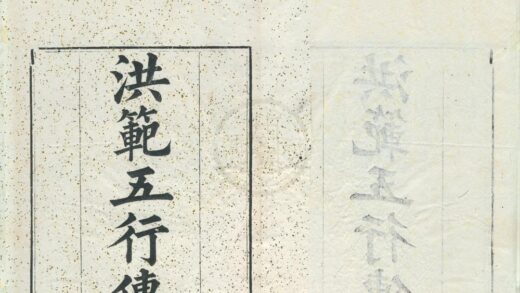 洪範五行傳